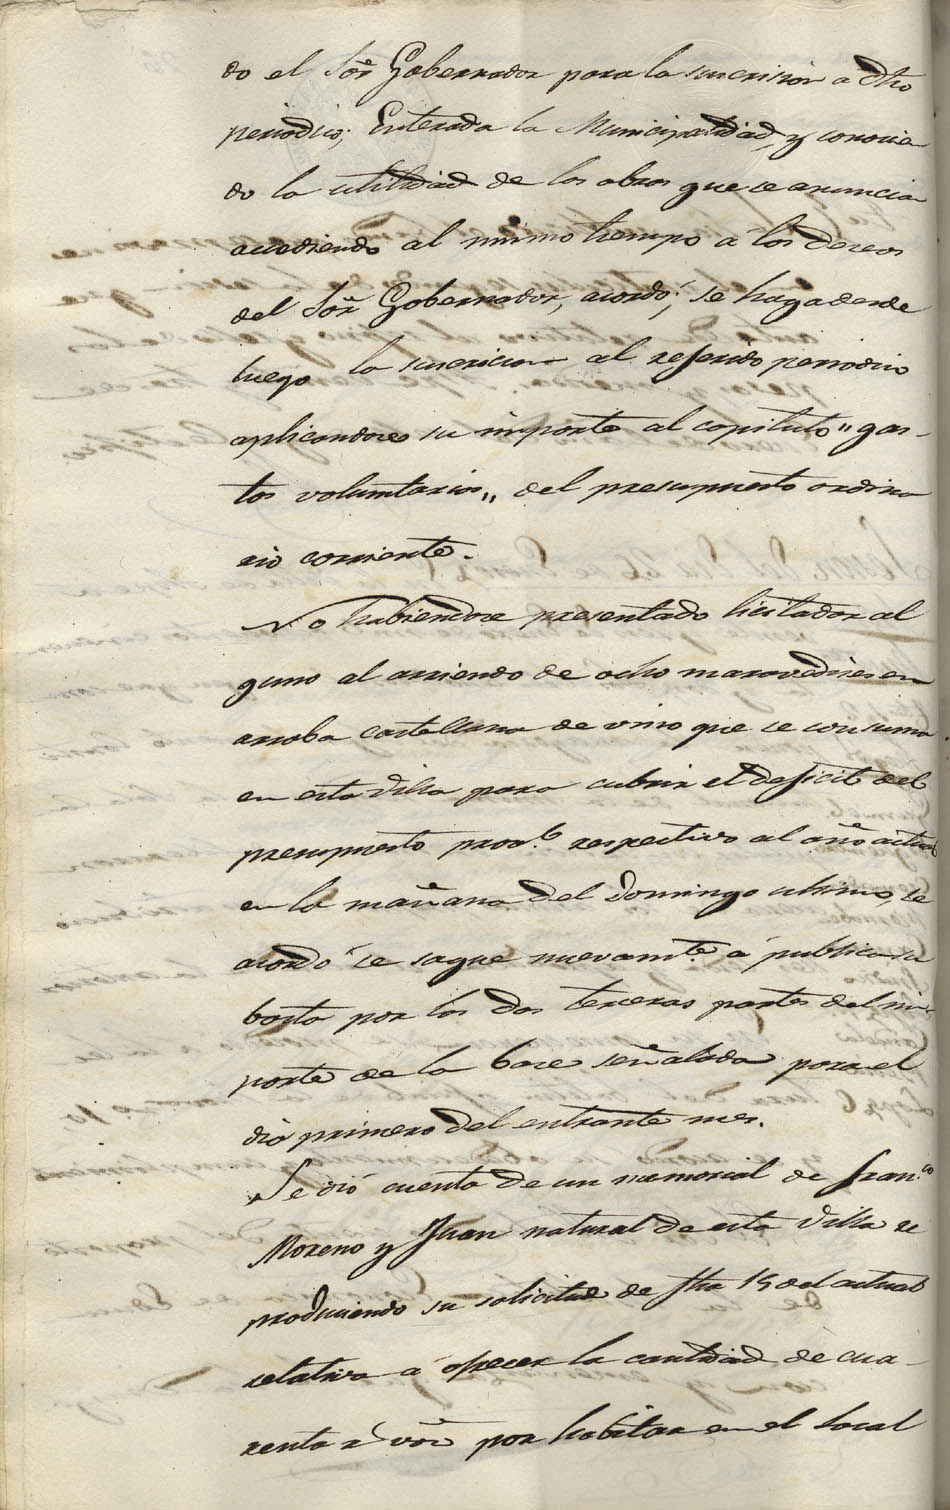 do el Sõr Gobernador para la suscricion a dho
periodico; Enterada la Municipalidad, y conocien
do la utilidad de las obras que se anuncia
accediendo al mismo tiempo a los deseos
del Sõr Gobernador, acordó; se haga desde
luego la suscricion al referido periodico
aplicandose su importe al capitulo "gas-
tos voluntarios" del presupuesto ordina
rio corriente.
No habiendose presentado licitador al
guno al arriendo de ocho maravedises en
arroba castellana de vino que se consuma
en esta Villa para cubrir el deficit del
presupuesto prov.l respectivo al año actual
en la mañana del Domingo ultimo, se
acordó se saque nuevam.te á publica su
basta por las dos terceras partes del im-
porte de la base señalada para el
dia primero del entrante mes.
Se dió cuenta de un memorial de Fran.co
Moreno y Juan natural de esta Villa re
produciendo su solicitud de fha 19 del actual
relativa a ofrecer la cantidad de cua-
renta r.s võn por habitar en el local